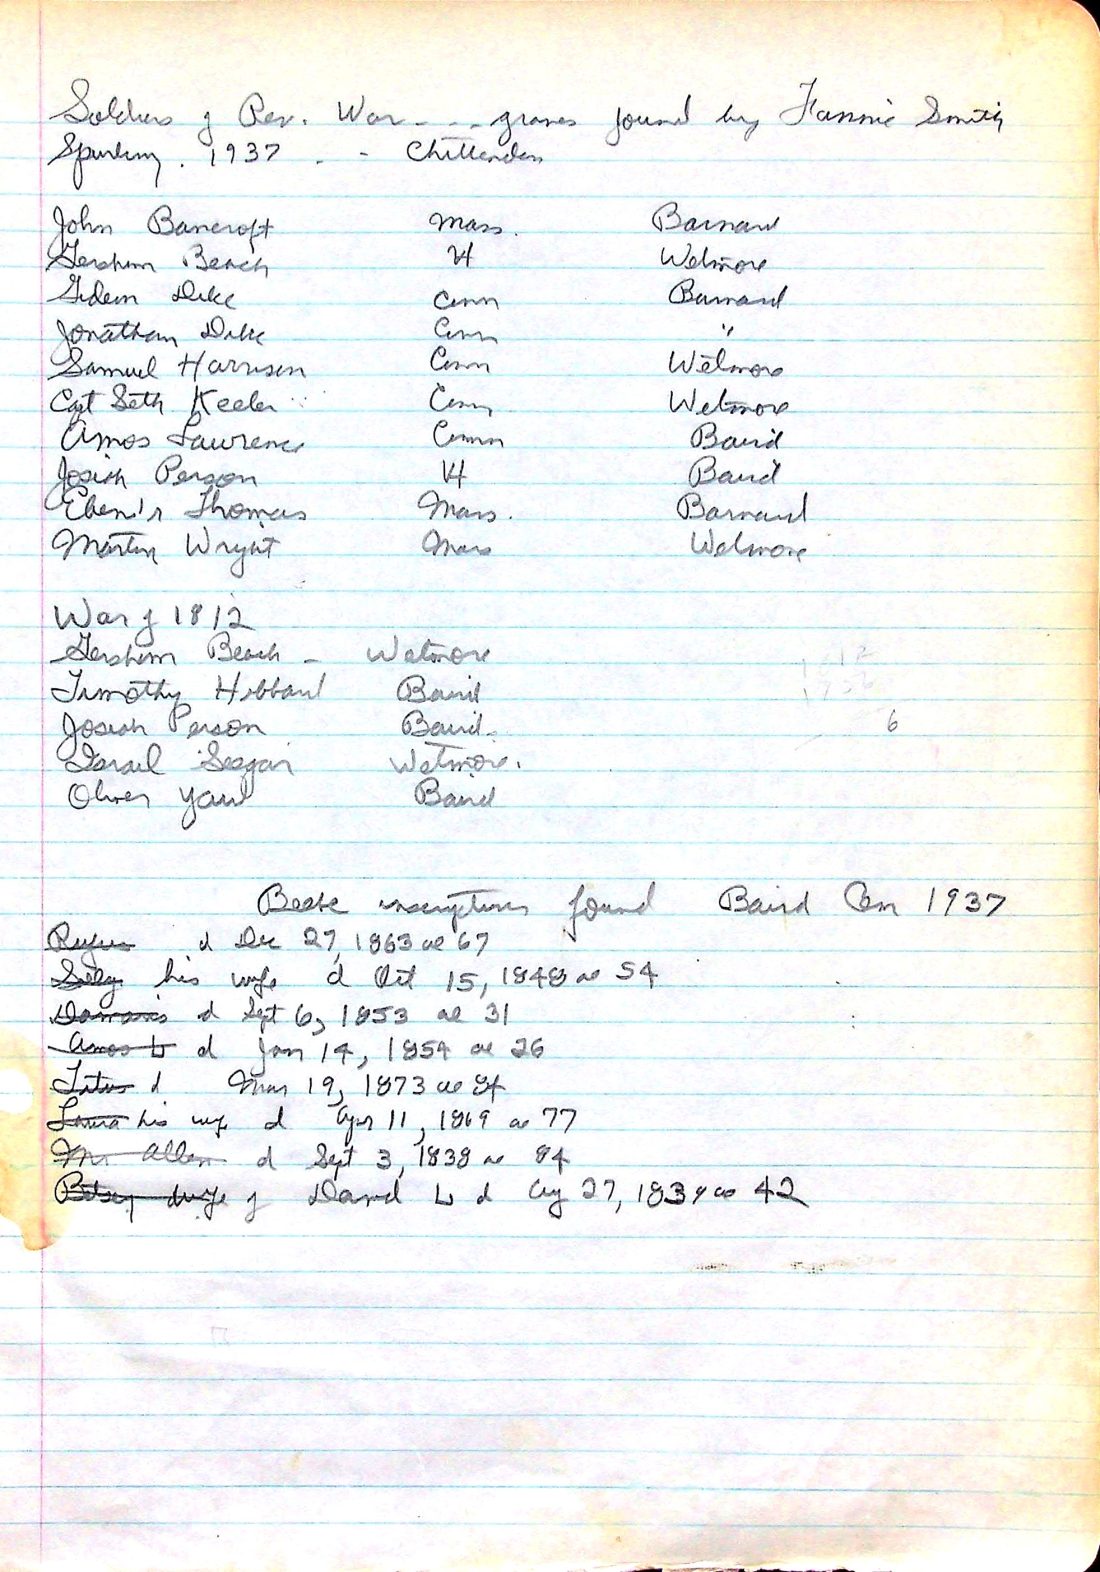 Soldiers of Rev. War - - - graves found by Fannie Smith
Spurling. 1937 . - Chittenden
John Bancroft Mass. Barnard
Gershom Beach Vt Wetmore
Gideon Dike Conn Barnard
Jonathan Dike Conn "
Samuel Harrison Conn Wetmore
Capt Seth Keeler Conn Wetmore
Amos Lawrence Conn Baird
Josiah Person Vt Baird
Eben'r Thomas Mass. Barnard
Martin Wright Mass Wetmore
War of 1812
Gershom Beach - Wetmore
Timothy Hibbard Baird
Josiah Person Baird.
6
Israel Wetmore.
Oliver Yaw Baird
Beebe inscriptions found Baird Cem 1937
Rufus d Dec 27, 1863 ae 67
his wife d Oct 15, 1848 ae 54
Damaris d Sept 6, 1853 ae 31
Amos L d Jan 14, 1854 ae 26
Titus d Mar 19, 1873 ae 84
Laura his wife d Apr 11, 1869 ae 77
Mr Allen d Sept 3, 1838 ae 84
Betsey wife of David L d Aug 27, ae 42